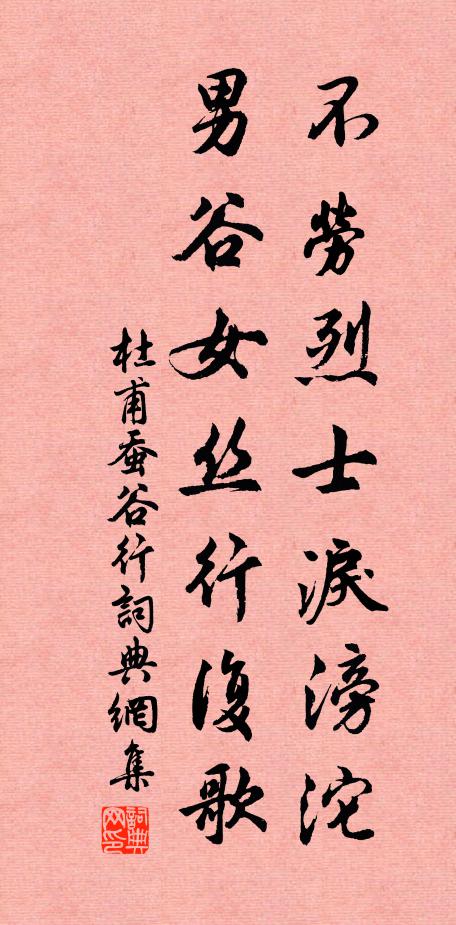 不勞烈士淚滂沱
男谷女丝行復歌
杜甫蚕谷行詞典網集
詞典網印